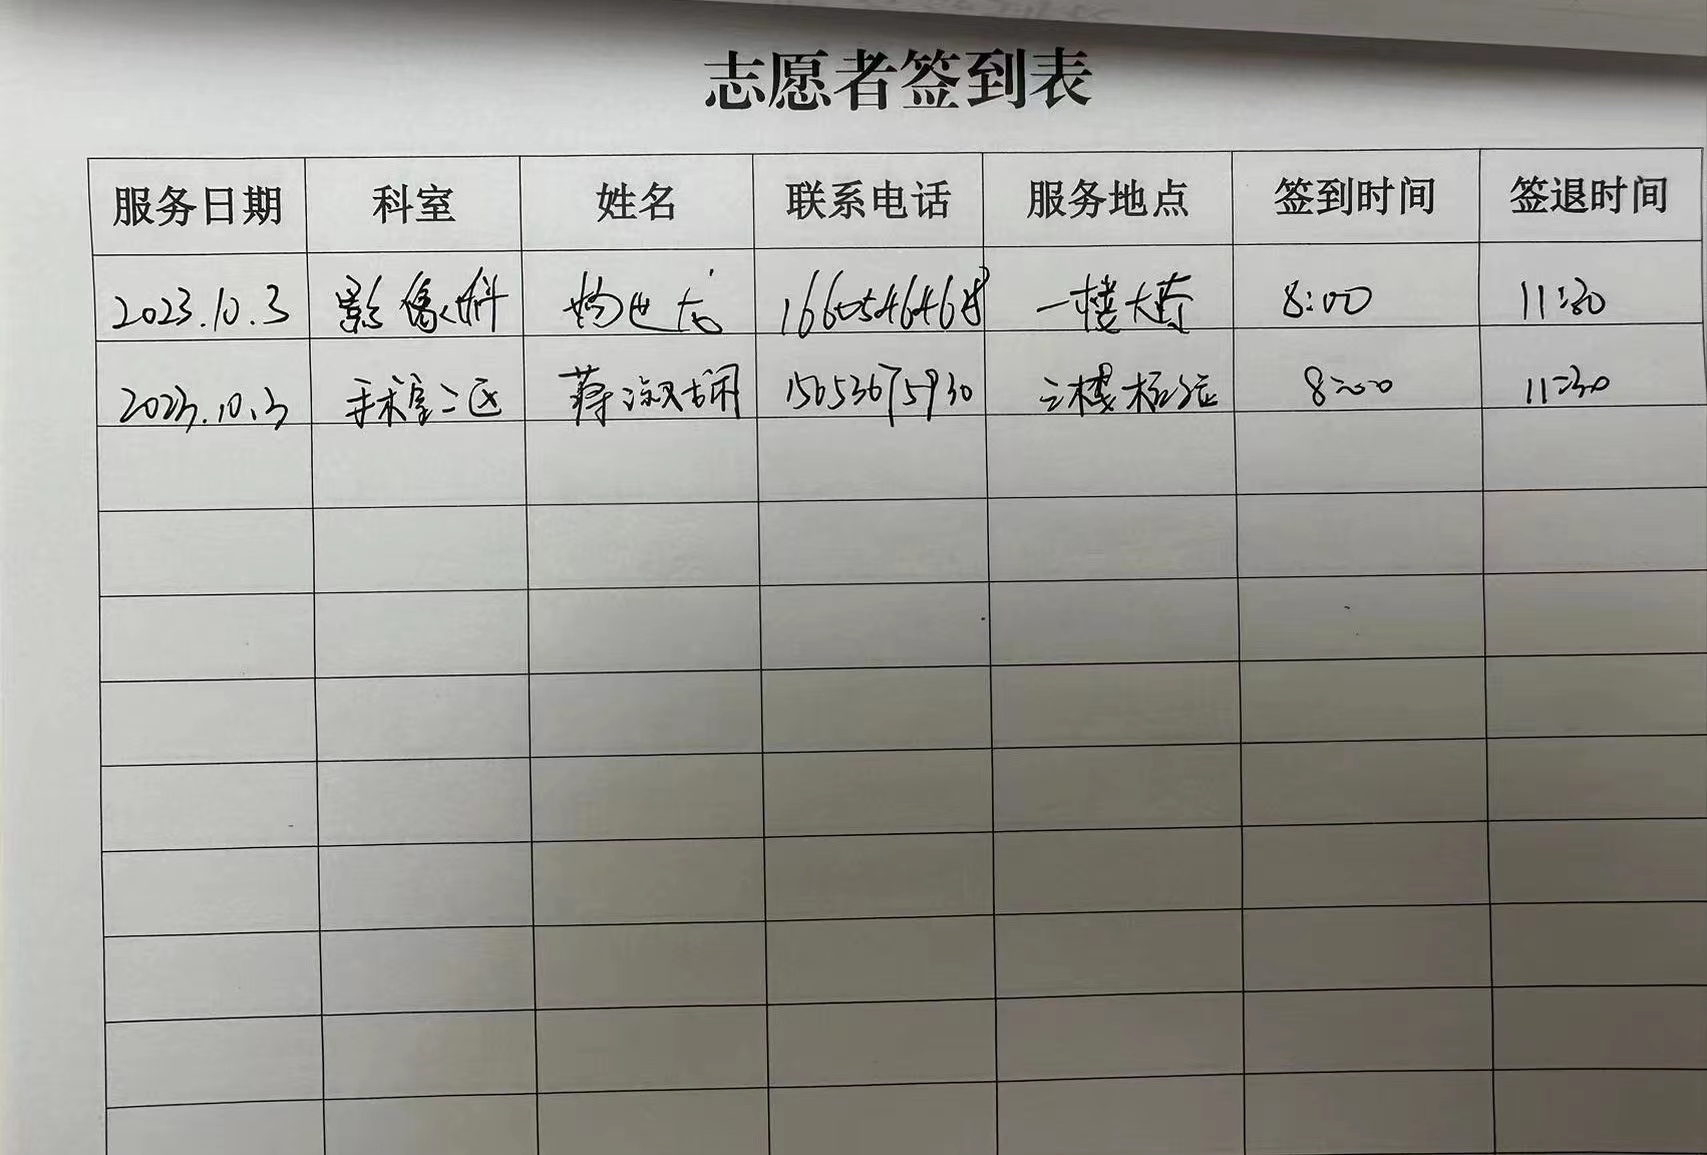 志愿者签到表
服务日期 科室 姓名 联系电话 服务地点 签到时间 签退时间
2023.10.3 影像科 1660546468 一楼大厅 8:00 11:30
2023.10.3 手术室二区 蒋淑娟 15653675930 二楼 8:00 11:30